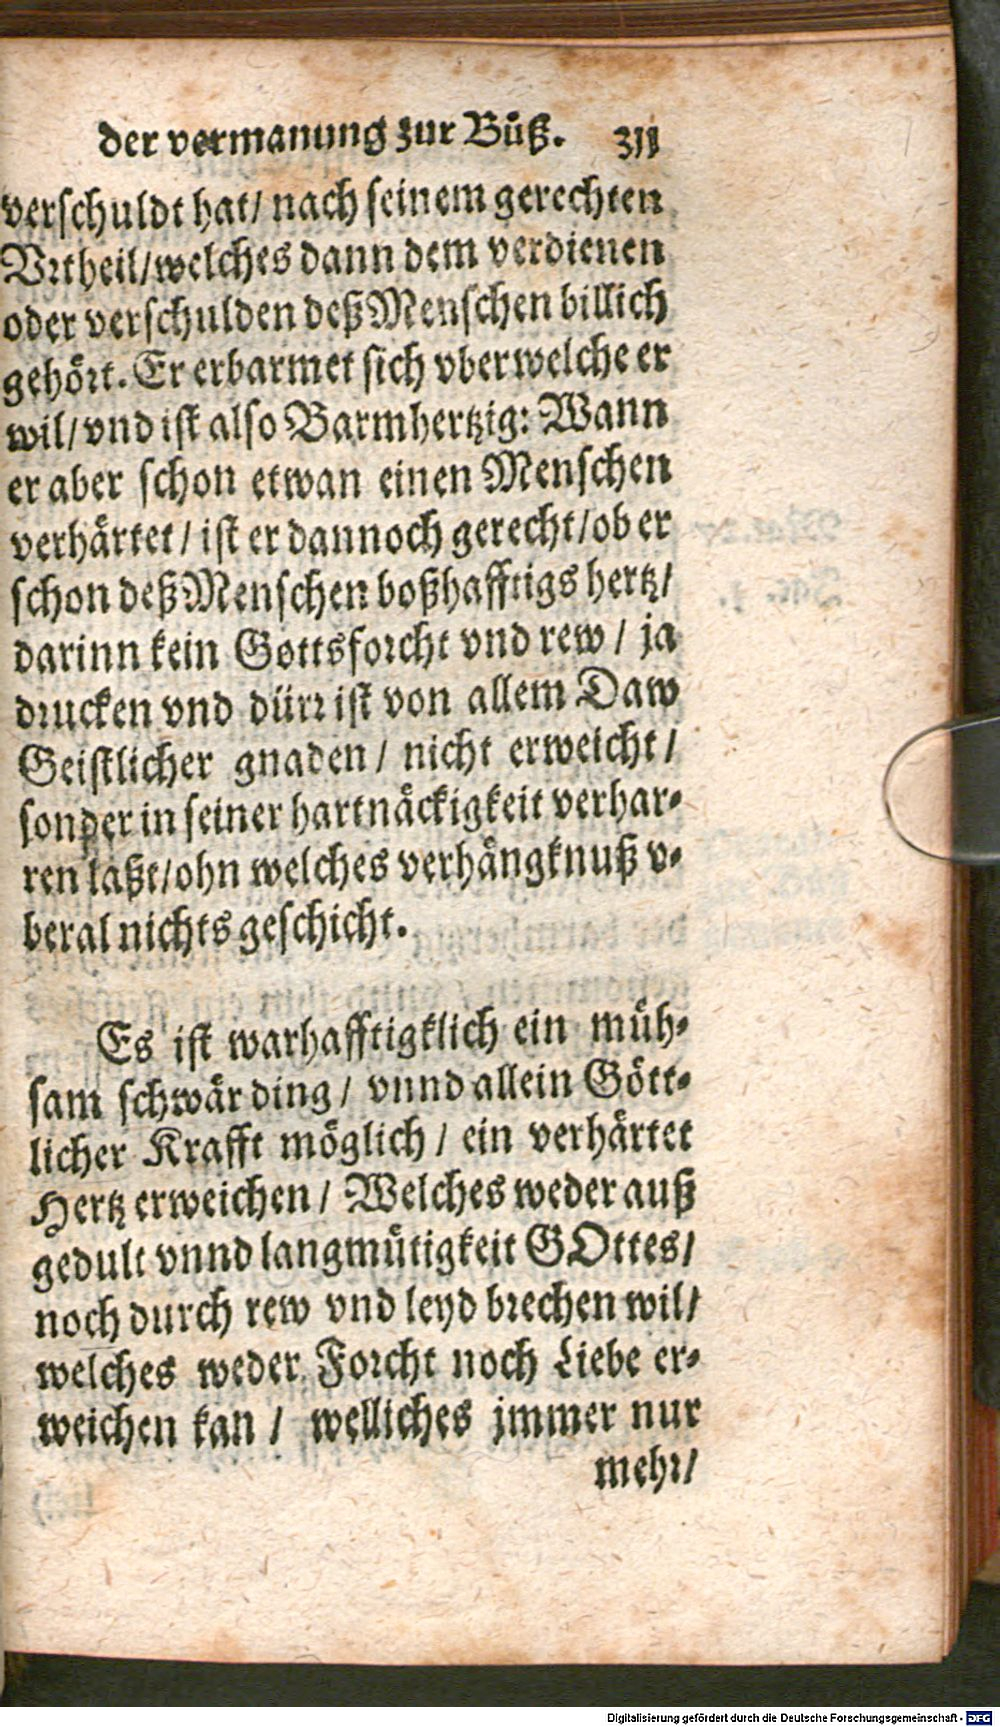 der vermanung zur Bůß. 311
verschuldt hat/ nach seinem gerechten
Vrtheil/welches dann dem verdienen
oder verschulden deß Menschen billich
gehört. Er erbarmet sich vber welche er
wil/ vnd ist also Barmhertzig: Wann
er aber schon etwan einen Menschen
verhärtet/ ist er dannoch gerecht/ob er
schon deß Menschen boßhafftigs hertz/
darinn kein Gottsforcht vnd rew/ ja
drucken vnd dürr ist von allem Daw
Geistlicher gnaden/ nicht erweicht/
sonder in seiner hartnäckigkeit verhar-
ren laßt/ohn welches verhängknuß v-
beral nichts geschicht.
Es ist warhafftigklich ein müh-
sam schwär ding/ vnnd allein Gött-
licher Krafft möglich/ ein verhärtet
Hertz erweichen/ Welches weder auß
gedult vnnd langmütigkeit GOttes/
noch durch rew vnd leyd brechen wil/
welches weder Forcht noch Liebe er-
weichen kan/ welliches jmmer nur
mehr/
Digitalisierung gefördert durch die Deutsche Forschungsgemeinschaft - DFG